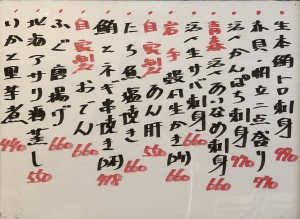 生本鮪トロ刺身 990
赤貝・帆立二点盛り 990
活〆かんぱち刺身 770
青森 活〆あいなめ刺身 770
活〆生サバ刺身 660
岩手 殻付生かき(2ケ) 660
自家製 あん肝 550
たち魚塩焼き 660
鮪とネギ串焼き(2本) 418
自家製 おでん 660
ふぐ唐揚げ 660
北海アサリ酒蒸し 550
いかと里芋煮 440